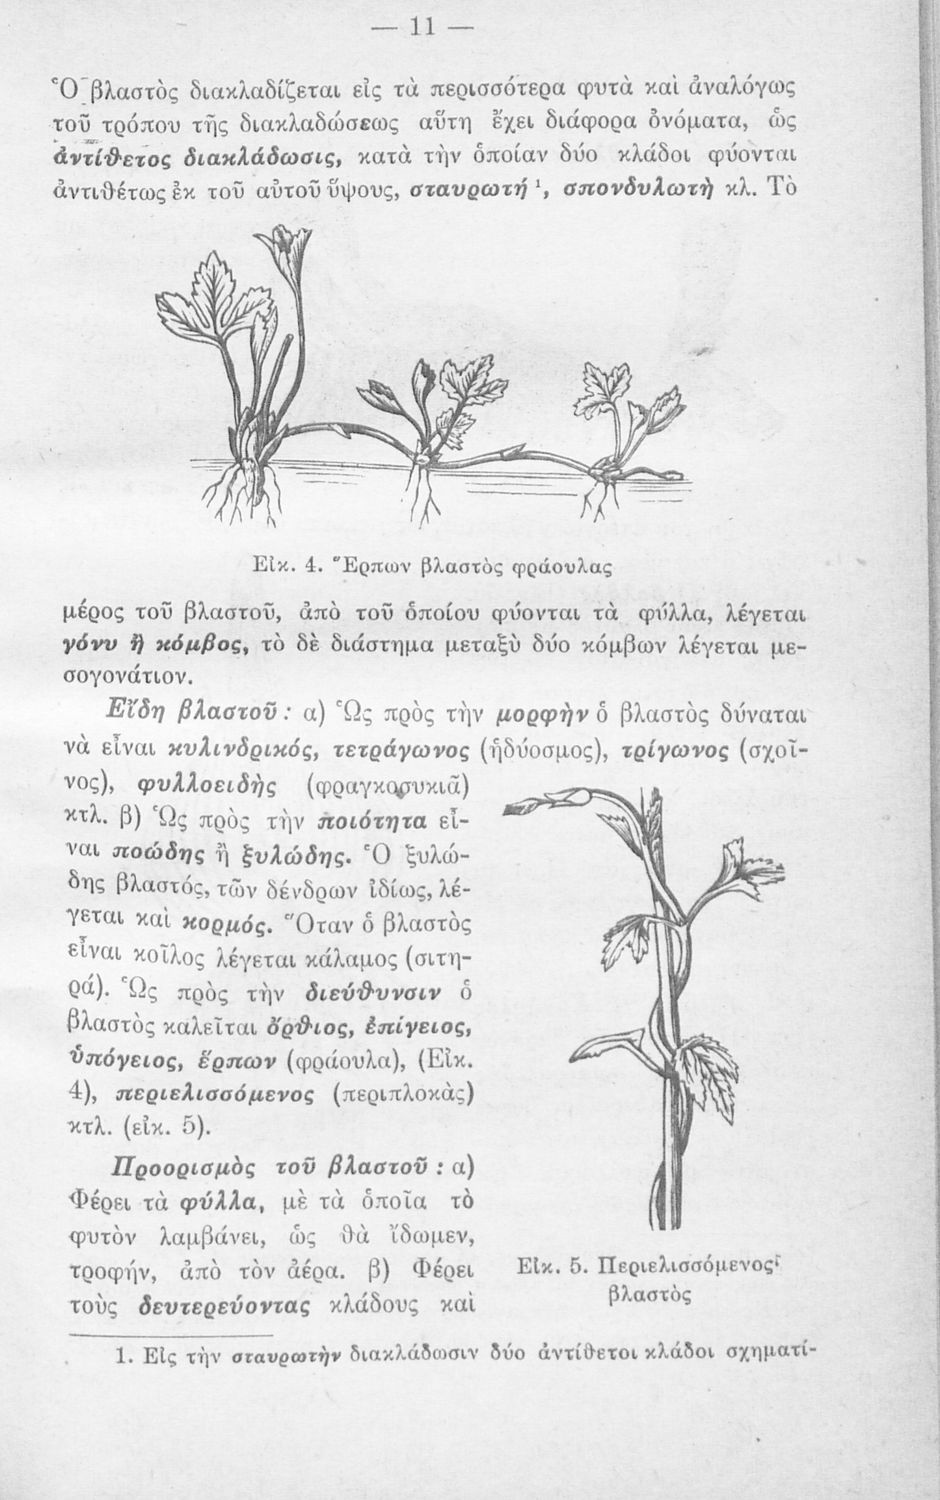 — 11 —
Ὁ βλαστὸς διακλαδίζεται εἰς τὰ περισσότερα φυτὰ καὶ ἀναλόγως
τοῦ τρόπου τῆς διακλαδώσεως αὕτη ἔχει διάφορα ὀνόματα, ὡς
ἀντίθετος διακλάδωσις, κατὰ τὴν ὁποίαν δύο κλάδοι φύονται
ἀντιθέτως ἐκ τοῦ αὐτοῦ ὕψους, σταυρωτή ¹, σπονδυλωτὴ κλ. Τὸ
Εἰκ. 4. Ἕρπων βλαστὸς φράουλας
μέρος τοῦ βλαστοῦ, ἀπὸ τοῦ ὁποίου φύονται τὰ φύλλα, λέγεται
γόνυ ἢ κόμβος, τὸ δὲ διάστημα μεταξὺ δύο κόμβων λέγεται με-
σογονάτιον.
Εἴδη βλαστοῦ : α) Ὡς πρὸς τὴν μορφὴν ὁ βλαστὸς δύναται
νὰ εἶναι κυλινδρικός, τετράγωνος (ἡδύοσμος), τρίγωνος (σχοῖ-
νος), φυλλοειδὴς (φραγκοσυκιᾶ)
κτλ. β) Ὡς πρὸς τὴν ποιότητα εἶ-
ναι ποώδης ἢ ξυλώδης. Ὁ ξυλώ-
δης βλαστός, τῶν δένδρων ἰδίως, λέ-
γεται καὶ κορμός. Ὅταν ὁ βλαστὸς
εἶναι κοῖλος λέγεται κάλαμος (σιτη-
ρά). Ὡς πρὸς τὴν διεύθυνσιν ὁ
βλαστὸς καλεῖται ὄρθιος, ἐπίγειος,
ὑπόγειος, ἕρπων (φράουλα), (Εἰκ.
4), περιελισσόμενος (περιπλοκὰς)
κτλ. (εἰκ. 5).
Προορισμὸς τοῦ βλαστοῦ : α)
Φέρει τὰ φύλλα, μὲ τὰ ὁποῖα τὸ
φυτὸν λαμβάνει, ὡς θὰ ἴδωμεν,
τροφήν, ἀπὸ τὸν ἀέρα. β) Φέρει
τοὺς δευτερεύοντας κλάδους καὶ
Εἰκ. 5. Περιελισσόμενος
βλαστὸς
1. Εἰς τὴν σταυρωτὴν διακλάδωσιν δύο ἀντίθετοι κλάδοι σχηματί-